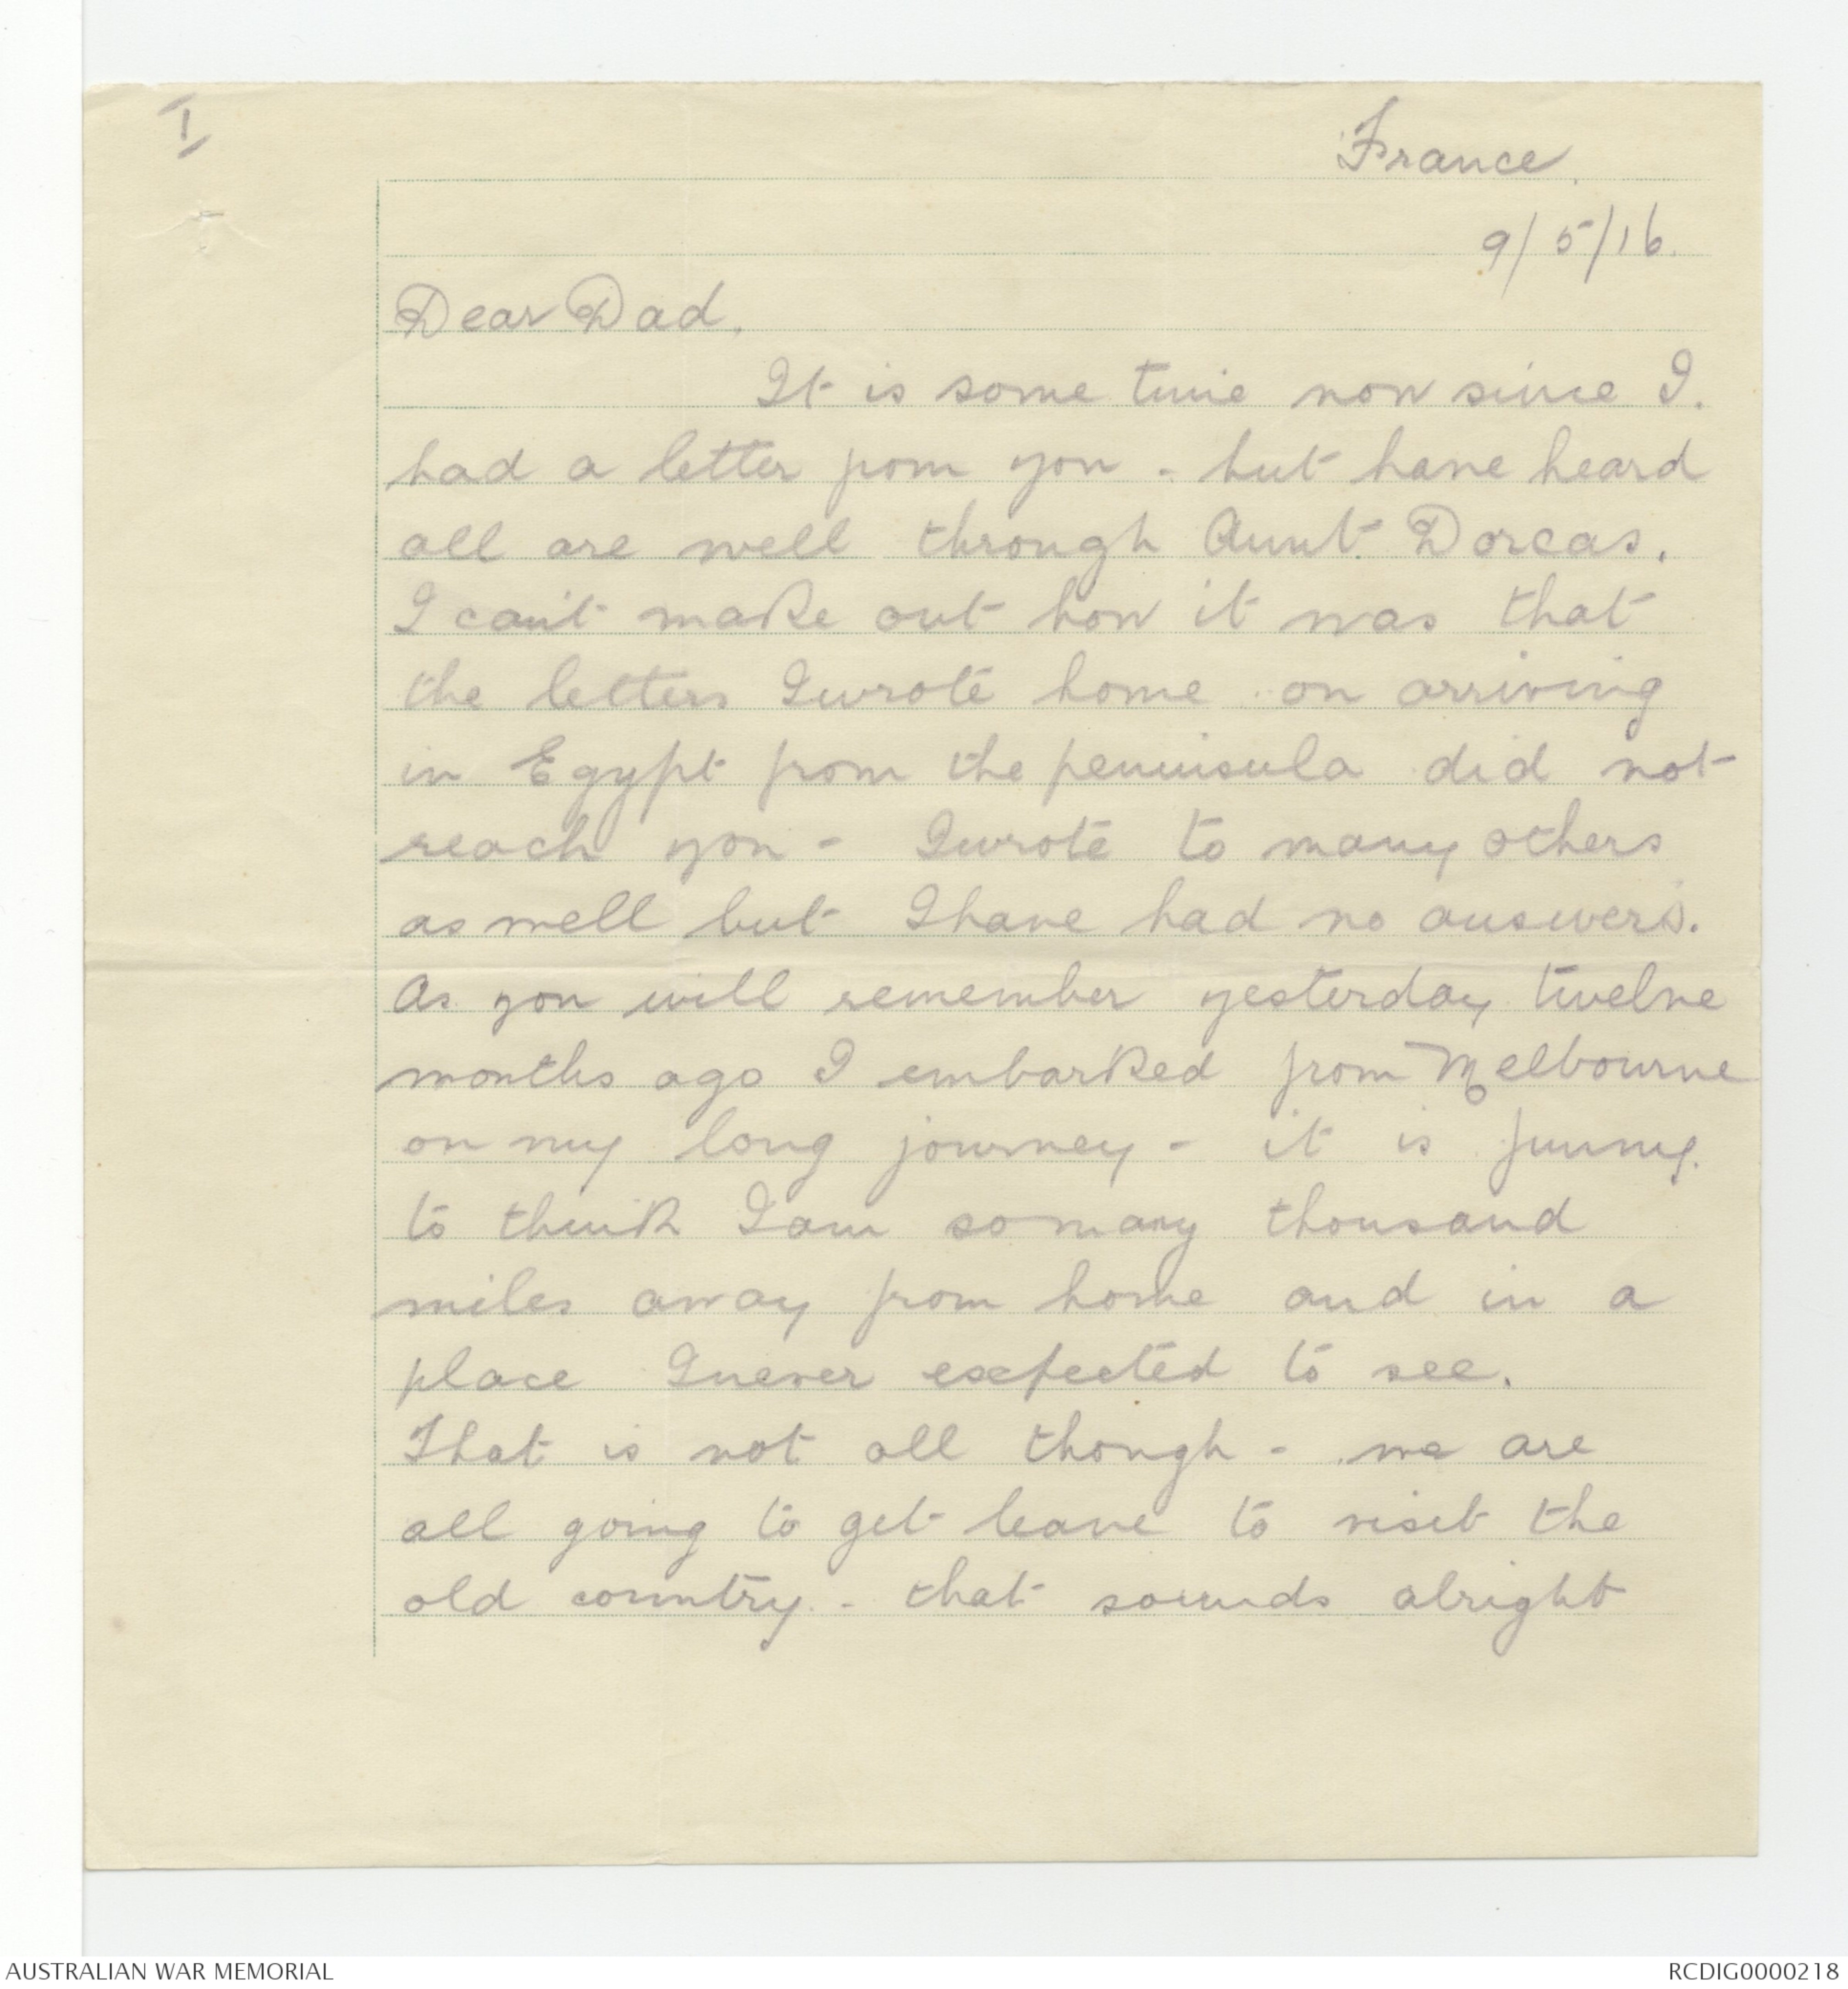 I
France.
9/5/16.
Dear Dad,
It is some time now since I.
had a letter from you - but have heard
all are well through Aunt Dorcas.
I can't make out how it was that
the letters I wrote home on arriving
in Egypt from the peninsula did not
reach you - I wrote to many others
as well but I have had no answers.
As you will remember yesterday twelve
months ago I embarked from Melbourne
on my long journey - it is funny.
to think I am so many thousand
miles away from home and in a
place I never expected to see.
That is not all though - we are
all going to get leave to visit the
old country - that sounds alright
AUSTRALIAN WAR MEMORIAL
RCDIG0000218